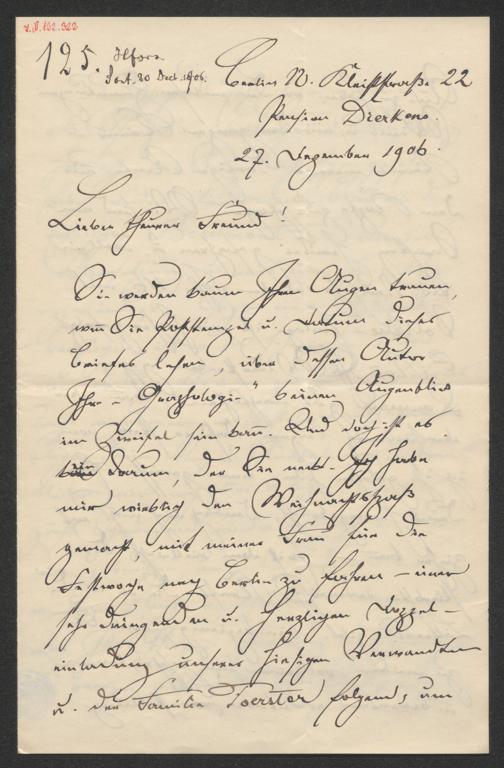 125.
Berlin W. Kleiststraße 22
Pension Dierkens.
27. Dezember 1906.
Lieber theurer Freund!
Sie werden kaum Ihren Augen trauen,
wenn Sie Poststempel u. Datum dieses
Briefes lesen, über dessen Autor
Ihre "Graphologie" keinen Augenblick
im Zweifel sein kann. Und doch ist es
kein Traum, der Sie neckt. Ich habe
mir wirklich den Weihnachtsspaß
gemacht, mit meiner Frau für die
Festwoche nach Berlin zu fahren – einer
sehr dringenden u. herzlichen Doppel-
einladung unserer hiesigen Verwandten
u. der Familie Foerster folgend, um